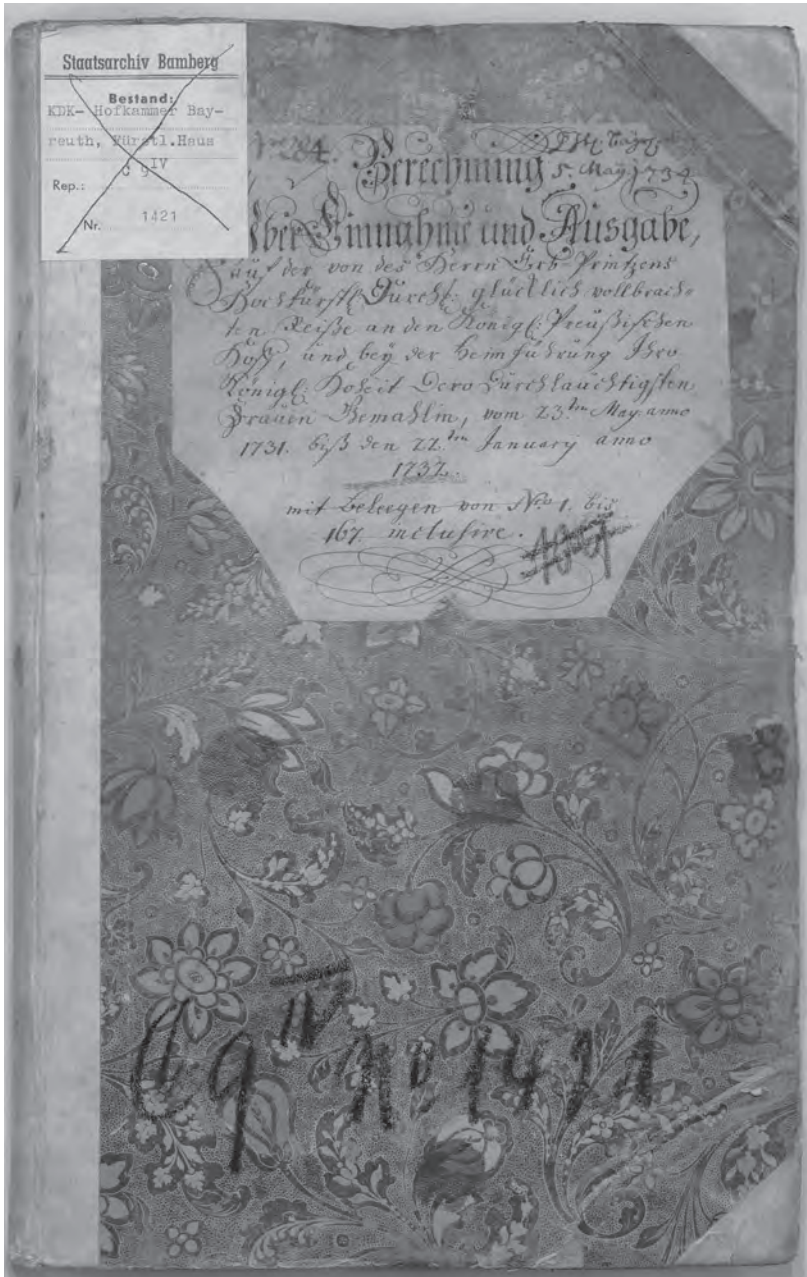 Staatsarchiv Bamberg
Bestand:
KDK- Hofkammer Bay-
reuth, Fürstl.Haus
Rep.: C 9 IV
Nr. 1421
5. May 1734
Berechnung
Über Einnahme und Ausgabe,
auf der von des Herrn Erb-Printzens
Hochfürstl: Durchl: glücklich vollbrach-
ten Reiße an den Königl: Preußischen
Hoff, und bey der Heimführung Ihro
Königl: Hoheit Dero Durchlauchtigsten
Frauen Gemahlin, vom 23.ten May anno
1731. biß den 22.ten January anno
1732.
mit Beleegen von No. 1. bis
167 inclusive.
C 9 IV No 1421